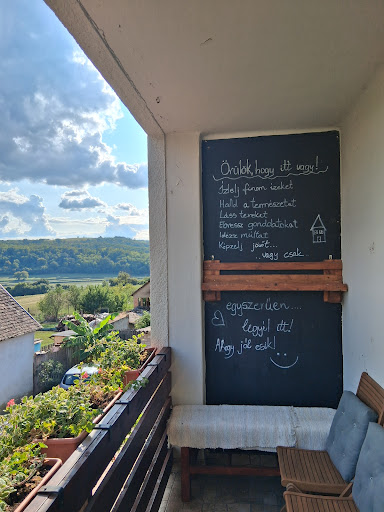 Örülök, hogy itt vagy!
Ízlelj finom ízeket
Halld a természetet
Láss tereket
Ébressz gondolatokat
Idézz múltat
Képzelj jövőt...
...vagy csak...
egyszerűen....
legyél itt!
Ahogy jól esik!